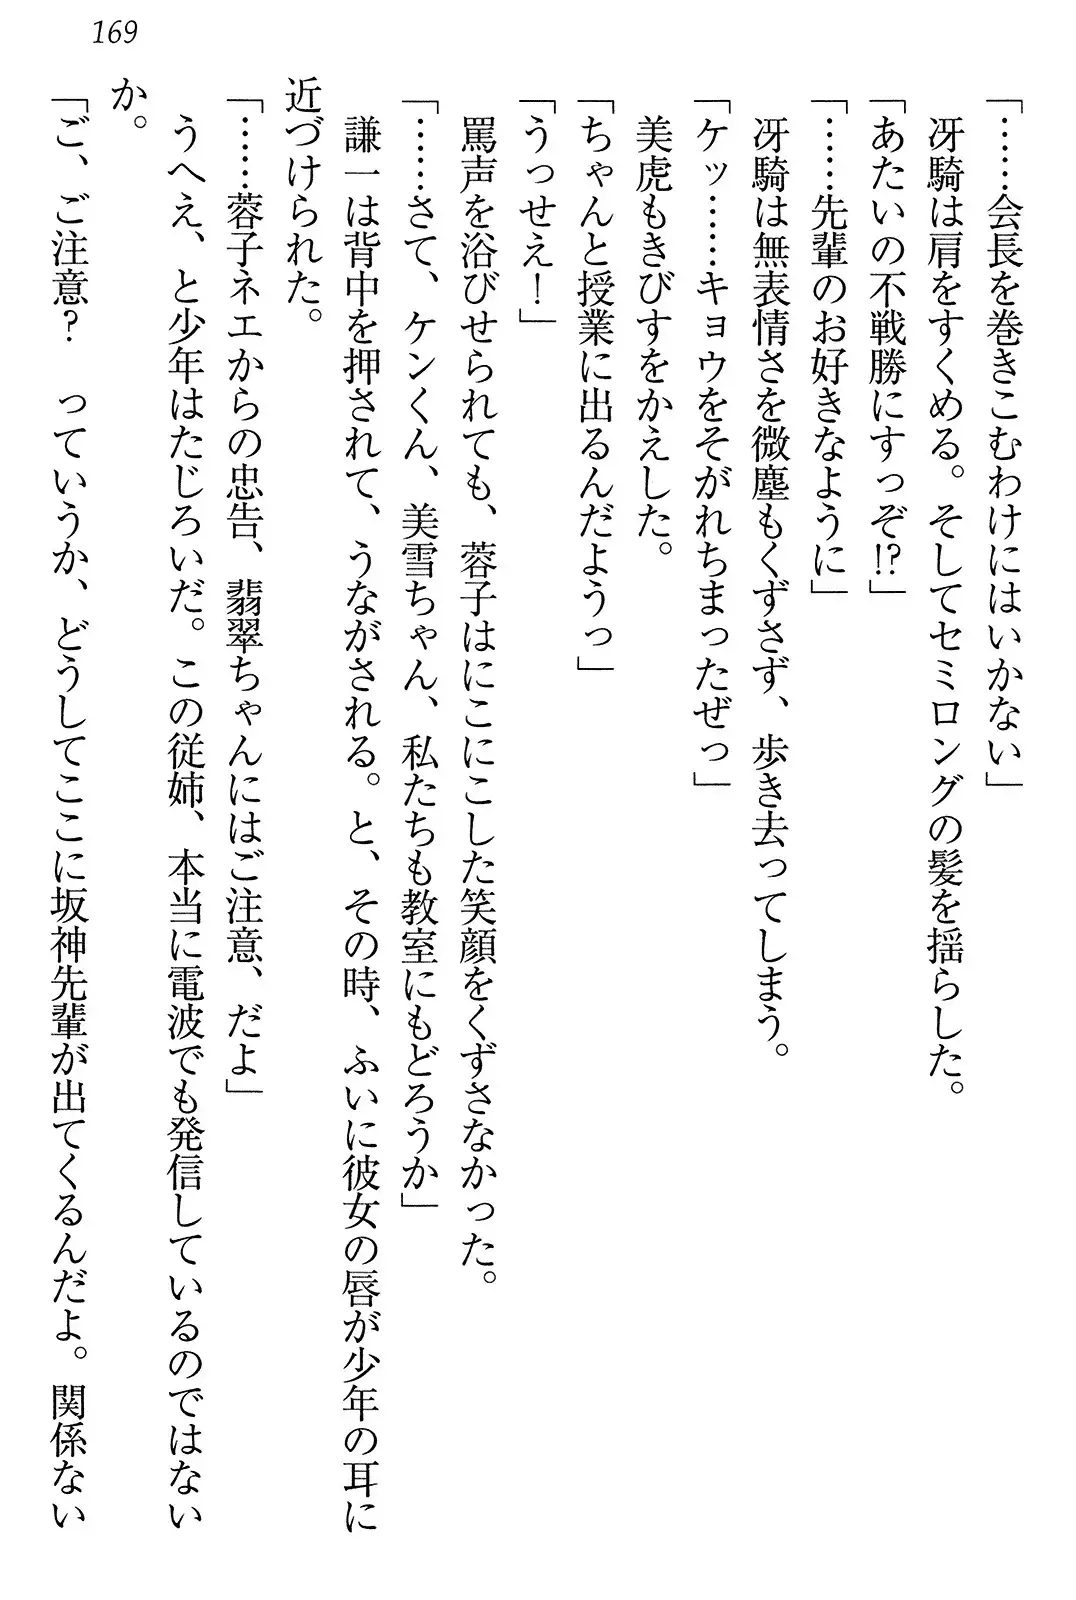 169
「……会長を巻きこむわけにはいかない」
冴騎は肩をすくめる。そしてセミロングの髪を揺らした。
「あたいの不戦勝にすっぞ!?」
「……先輩のお好きなように」
冴騎は無表情さを微塵もくずさず、歩き去ってしまう。
「ケッ……キョウをそがれちまったぜっ」
美虎もきびすをかえした。
「ちゃんと授業に出るんだようっ」
「うっせえ！」
罵声を浴びせられても、蓉子はにこにこした笑顔をくずさなかった。
「……さて、ケンくん、美雪ちゃん、私たちも教室にもどろうか」
謙一は背中を押されて、うながされる。と、その時、ふいに彼女の唇が少年の耳に
近づけられた。
「……蓉子ネエからの忠告、翡翠ちゃんにはご注意、だよ」
うへえ、と少年はたじろいだ。この従姉、本当に電波でも発信しているのではない
か。
「ご、ご注意？　っていうか、どうしてここに坂神先輩が出てくるんだよ。関係ない